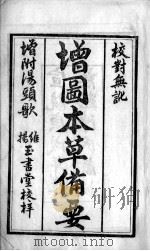 校對無訛
增圖本草備要
增附湯頭歌
維揚玉書堂校梓
www.youbook.com